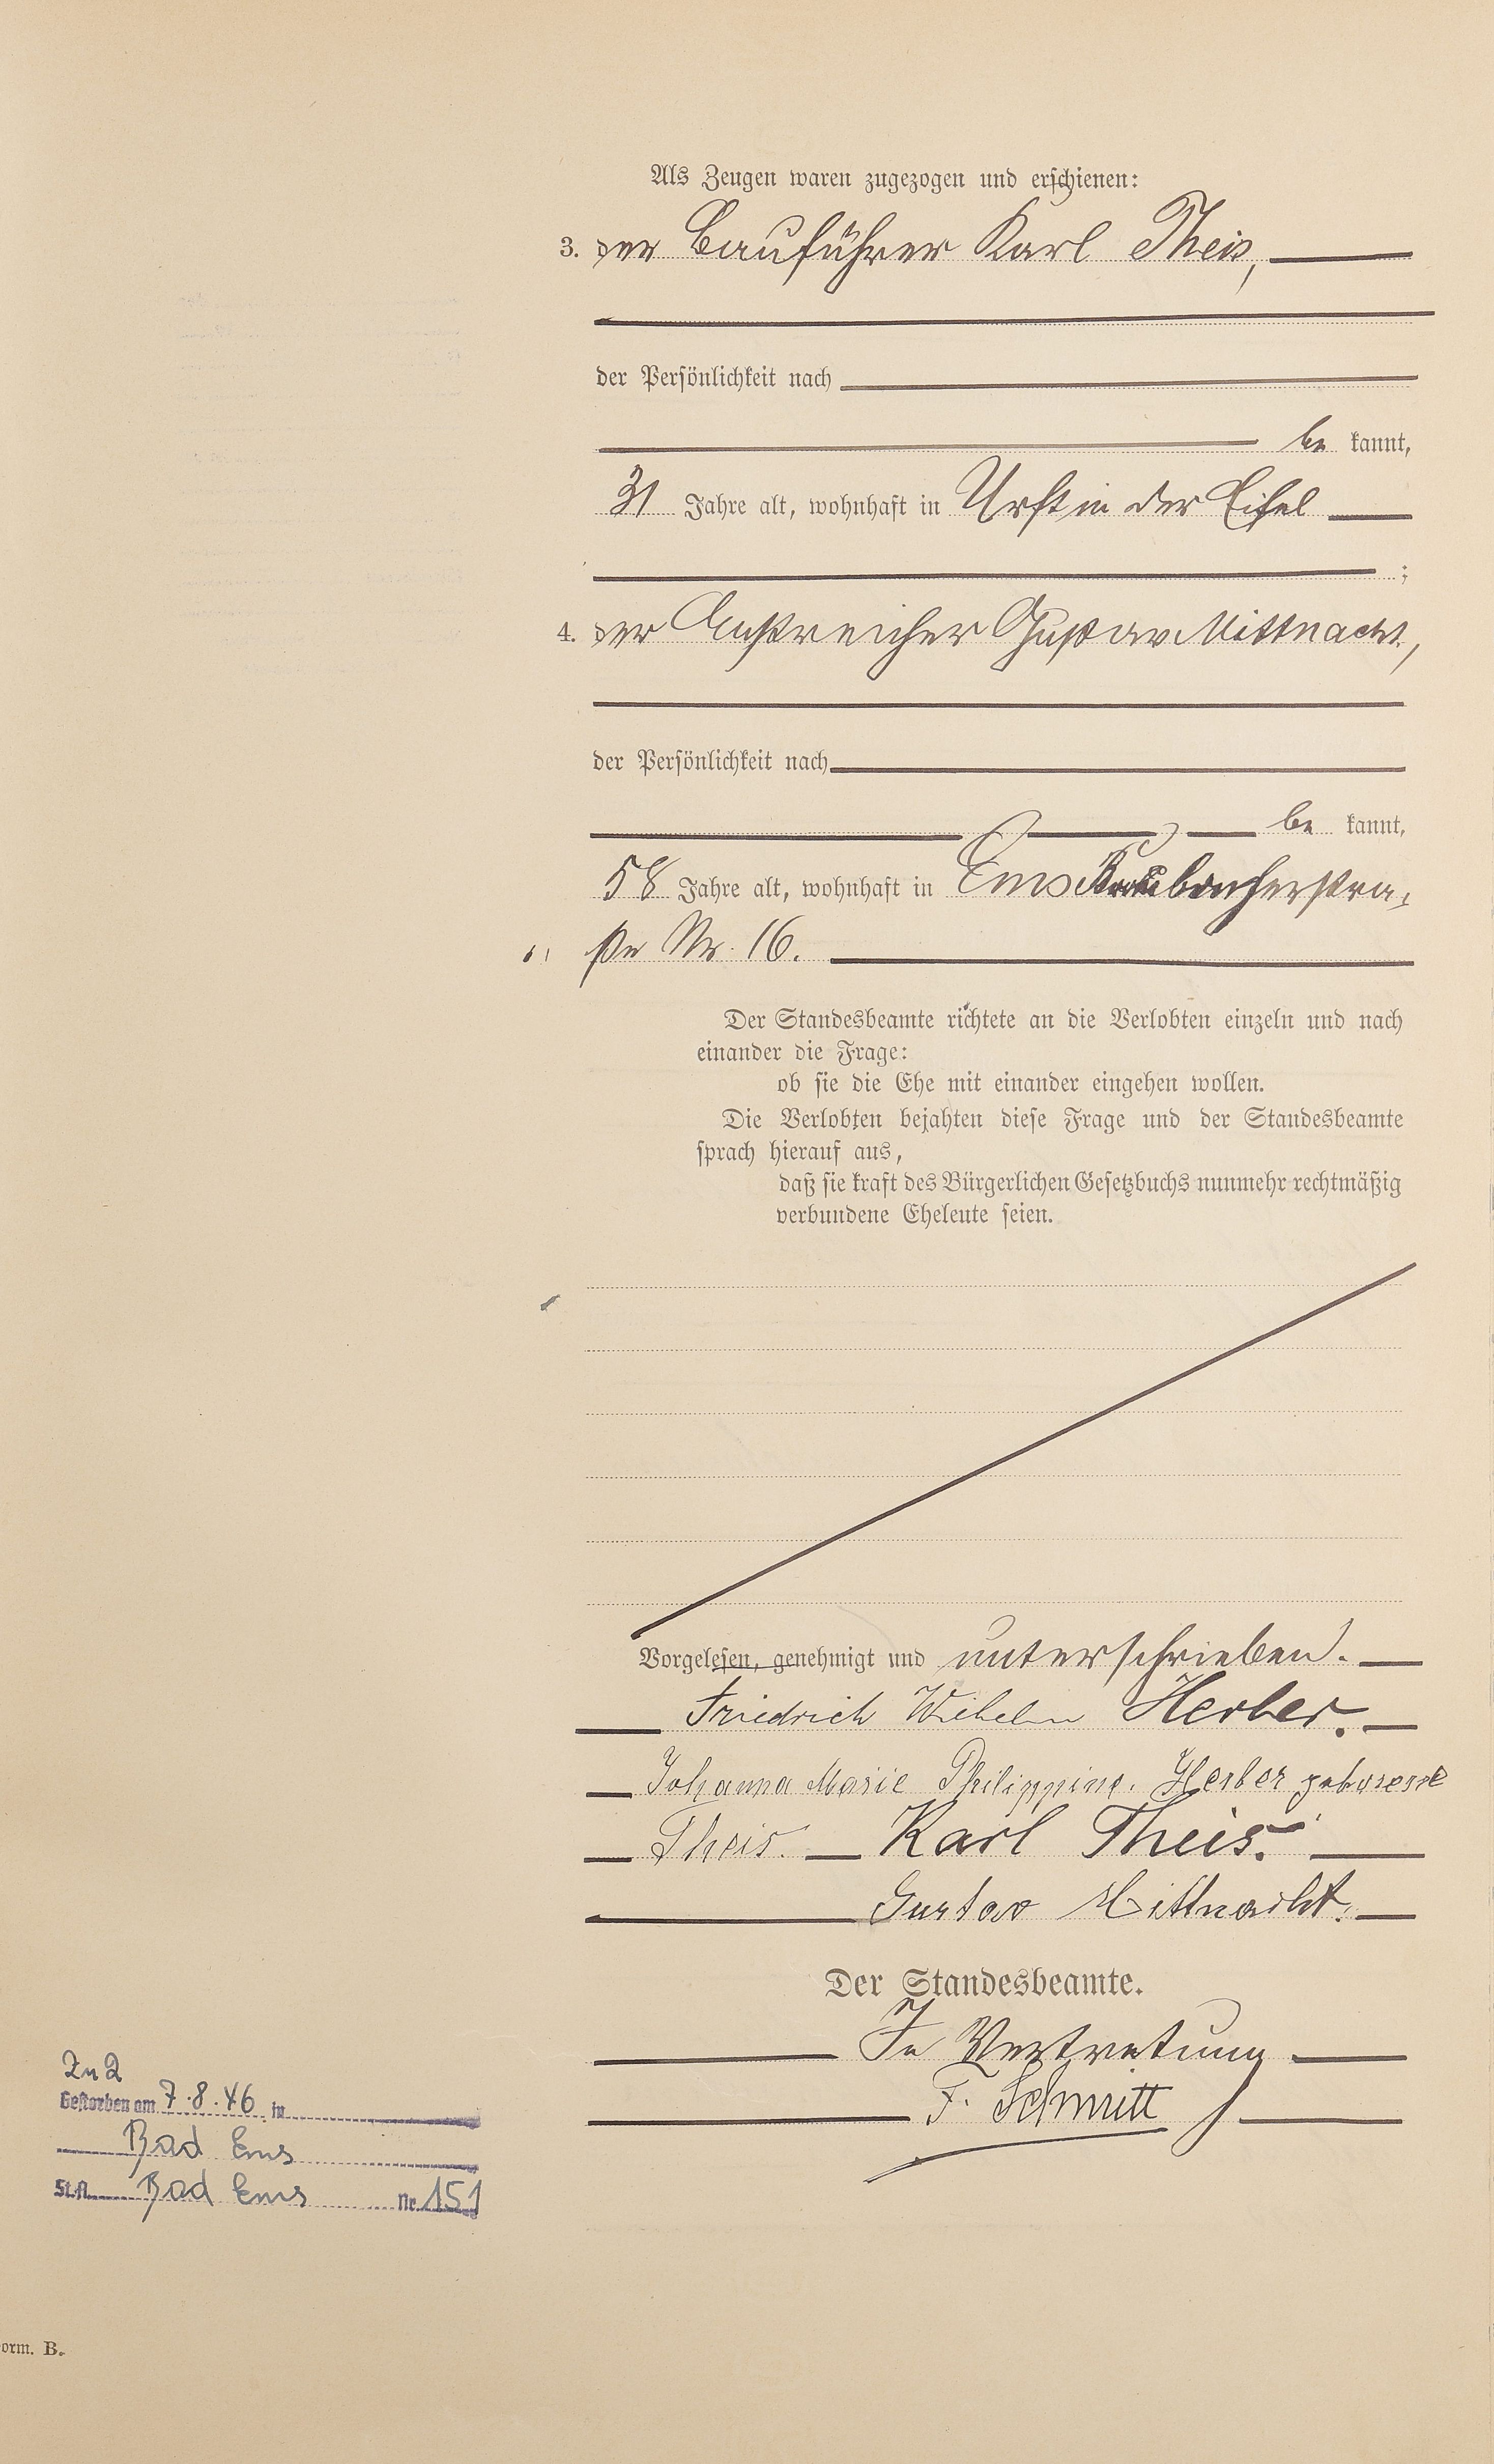 Als Zeugen waren zugezogen und erschienen:
3. der Bauführer Karl Theis,
der Persönlichkeit nach
be kannt,
31 Jahre alt, wohnhaft in Urft in der Eifel
;
4. der Anstreicher Gustav Mittnacht,
der Persönlichkeit nach
be kannt,
58 Jahre alt, wohnhaft in Ems
ße Nr. 16.
Der Standesbeamte richtete an die Verlobten einzeln und nach
einander die Frage:
ob sie die Ehe mit einander eingehen wollen.
Die Verlobten bejahten diese Frage und der Standesbeamte
sprach hierauf aus,
daß sie kraft des Bürgerlichen Gesetzbuchs nunmehr rechtmäßig
verbundene Eheleute seien.
Vorgelesen, genehmigt und unterschrieben.
Friedrich Wilhelm Herber.
Johanna Marie Philippine. Herber geborene
Theis. Karl Theis.
Gustav Mittnacht.
Der Standesbeamte.
In Vertretung
F. Schmitt
Zu 2
Gestorben am 7.8.46 in
Bad Ems
St.A. Bad Ems Nr. 151
orm. B.